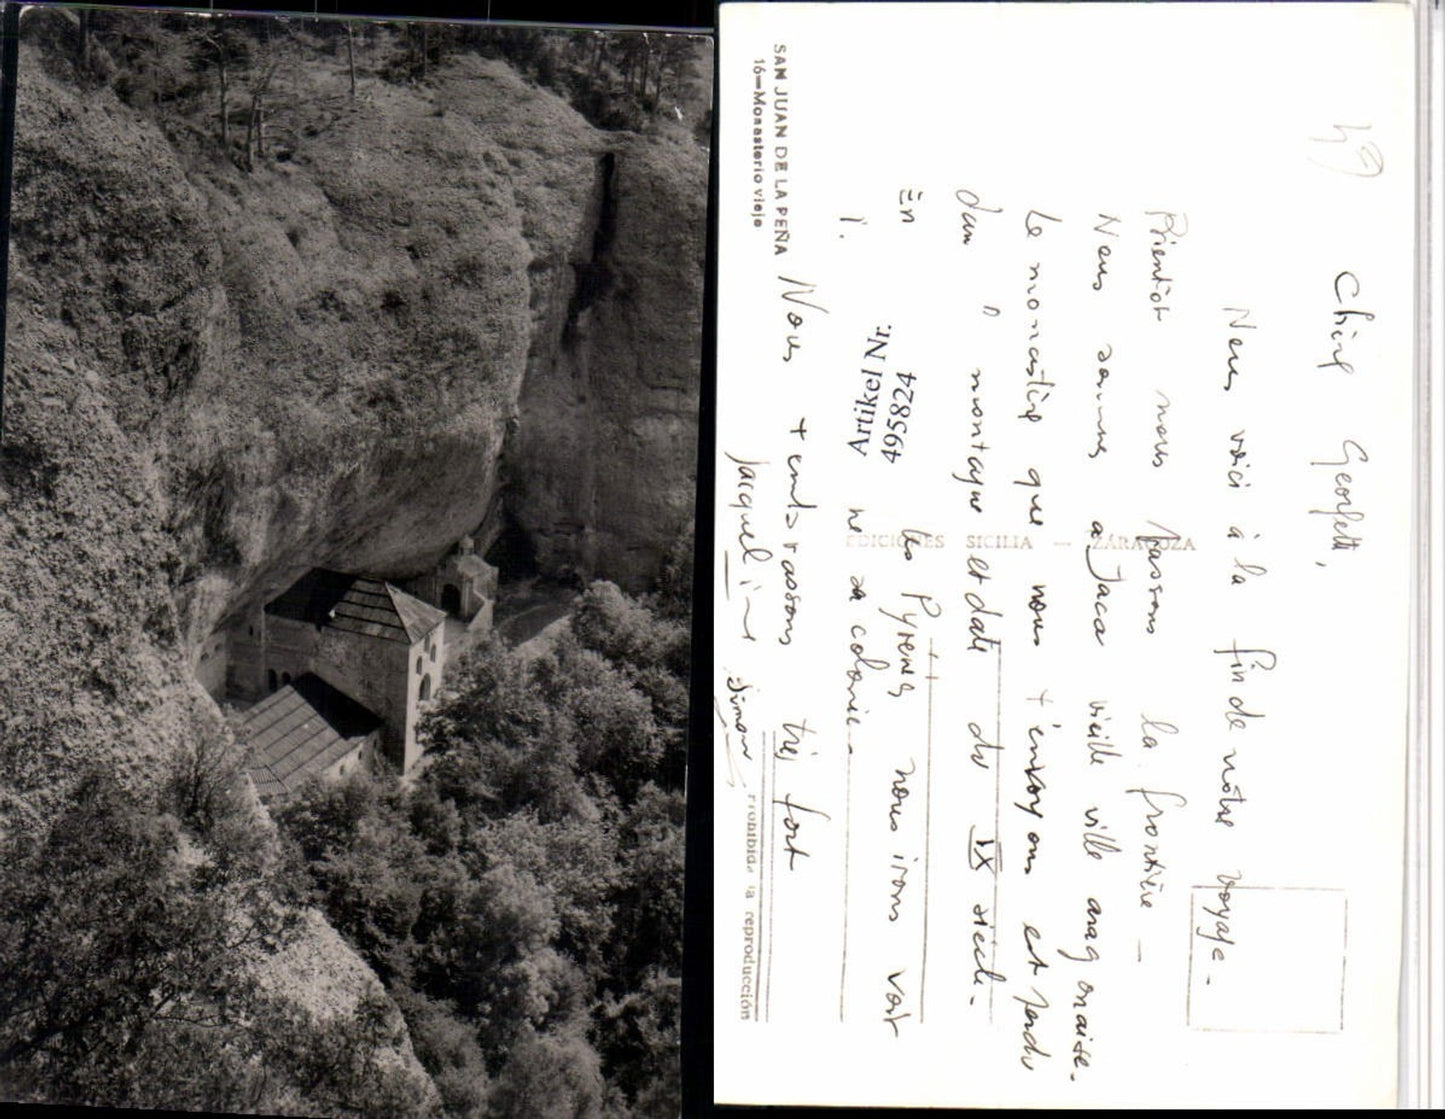 SAN JUAN DE LA PEÑA
16—Monasterio viejo
49
Chère Georgette,
Nous voici à la fin de nôtre voyage -
Bientôt nous passons la frontière -
Nous sommes à Jaca vieille ville aragonaise.
Le monastère que nous t'envoyons est perdu
dans la montagne et date du IX siècle -
En les Pyrénées nous irons voir
ne sa colonie -
Nous t'embrassons très fort
Jacqueline Simon
Artikel Nr.
495824
EDICIONES SICILIA — ZARAGOZA
Prohibida la reproducción